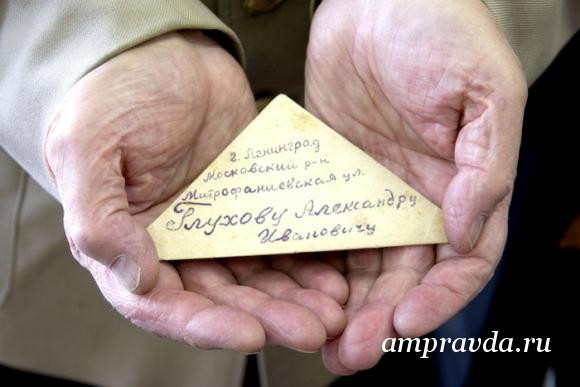 г. Ленинград
Московский р-н
Митрофаниевская ул.
Глухову Александру
Ивановичу
ampravda.ru